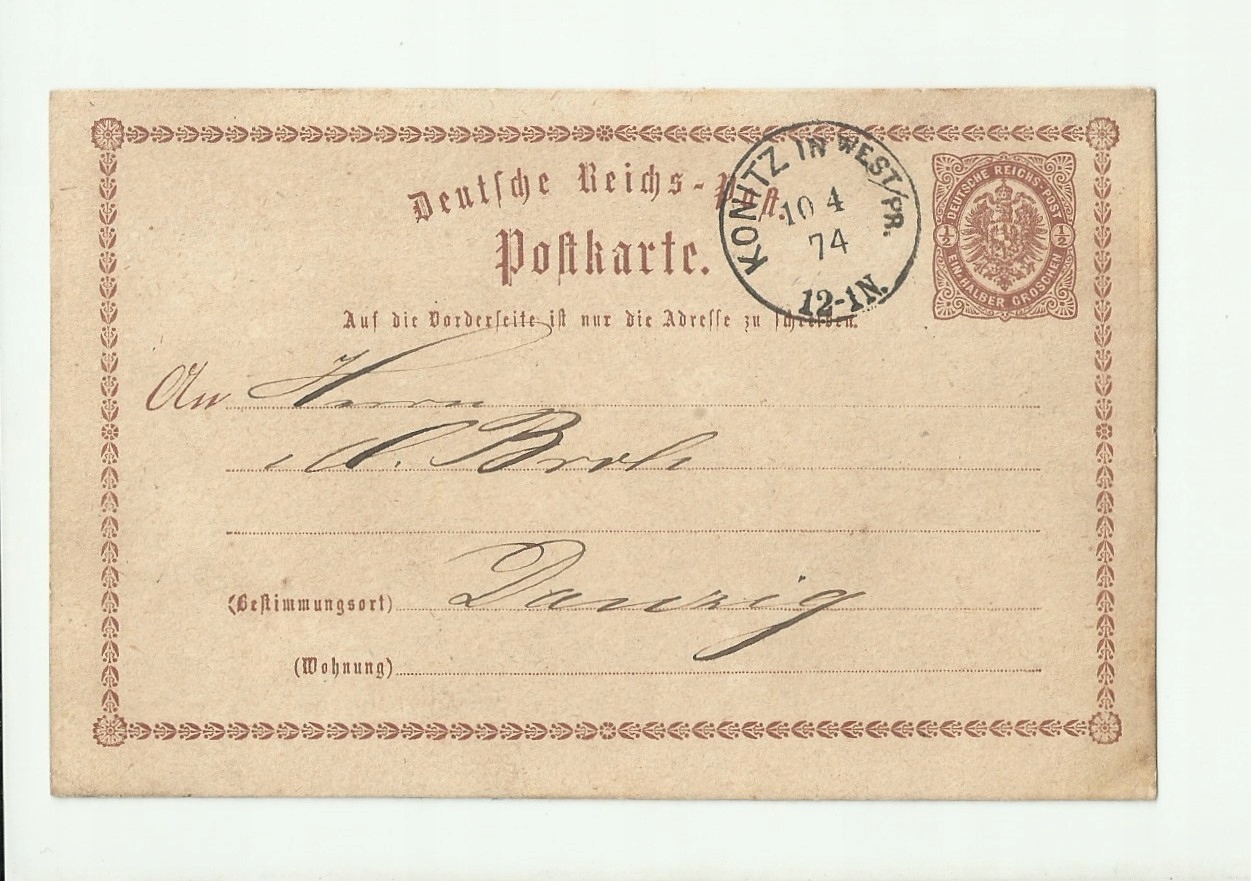 Deutsche Reichs-Post.
Postkarte.
KONITZ IN WEST/PR.
10 4
74
12-1N.
DEUTSCHE REICHS-POST
1/2 1/2
EIN HALBER GROSCHEN
Auf die Vorderseite ist nur die Adresse zu schreiben.
An Herrn
Danzig
(Bestimmungsort)
(Wohnung)